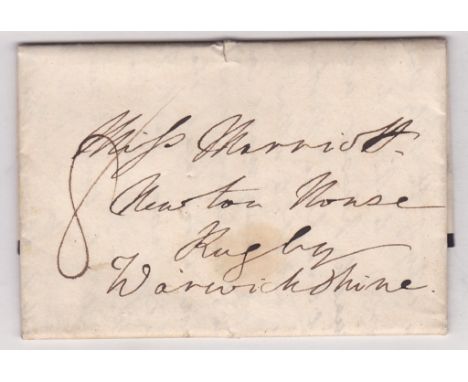 Miss Marriott.
Newton House
Rugby
Warwickshire.
8